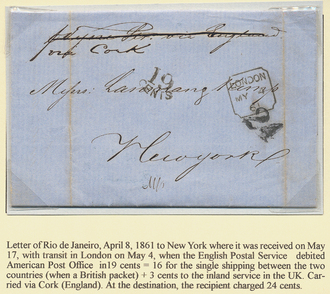 via Cork
19
CENTS
LONDON
MY
Messrs
24
New York
Letter of Rio de Janeiro, April 8, 1861 to New York where it was received on May
17, with transit in London on May 4, when the English Postal Service debited
American Post Office in19 cents = 16 for the single shipping between the two
countries (when a British packet) + 3 cents to the inland service in the UK. Car-
ried via Cork (England). At the destination, the recipient charged 24 cents.